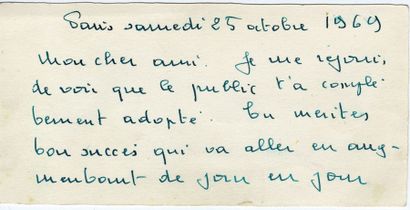 Paris samedi 25 octobre 1969
Mon cher ami. Je me réjouis
de voir que le public t'a complè
tement adopté. Tu mérites
ton succès qui va aller en aug-
mentant de jour en jour